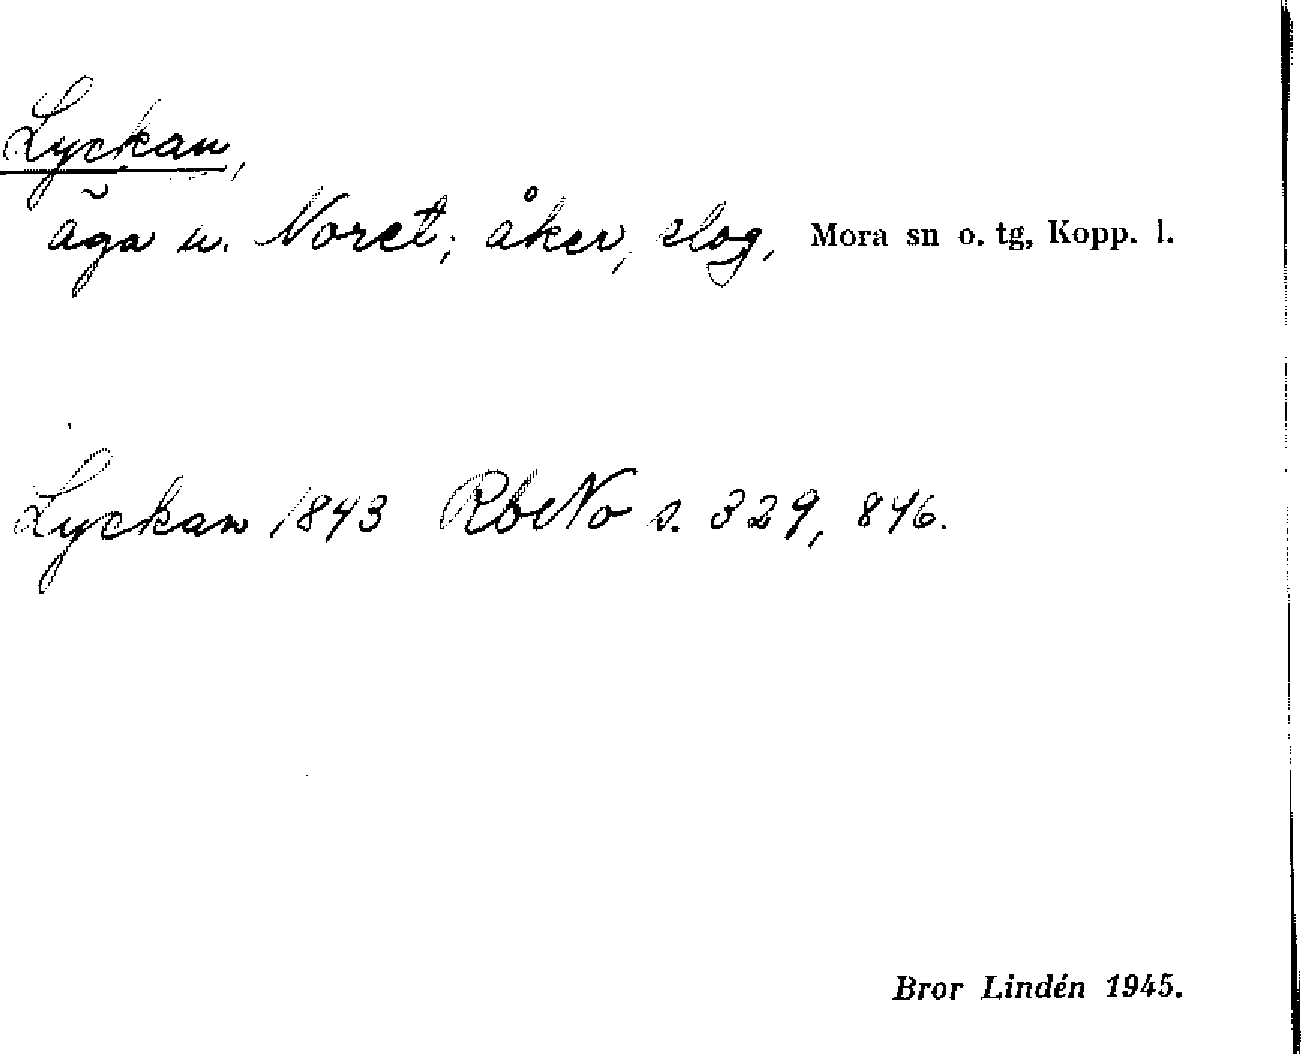 Lyckan,
äga u. Noret; åker, slog, Mora sn o. tg, Kopp. l.
Lyckan 1843 RbNo s. 329, 846.
Bror Lindén 1945.